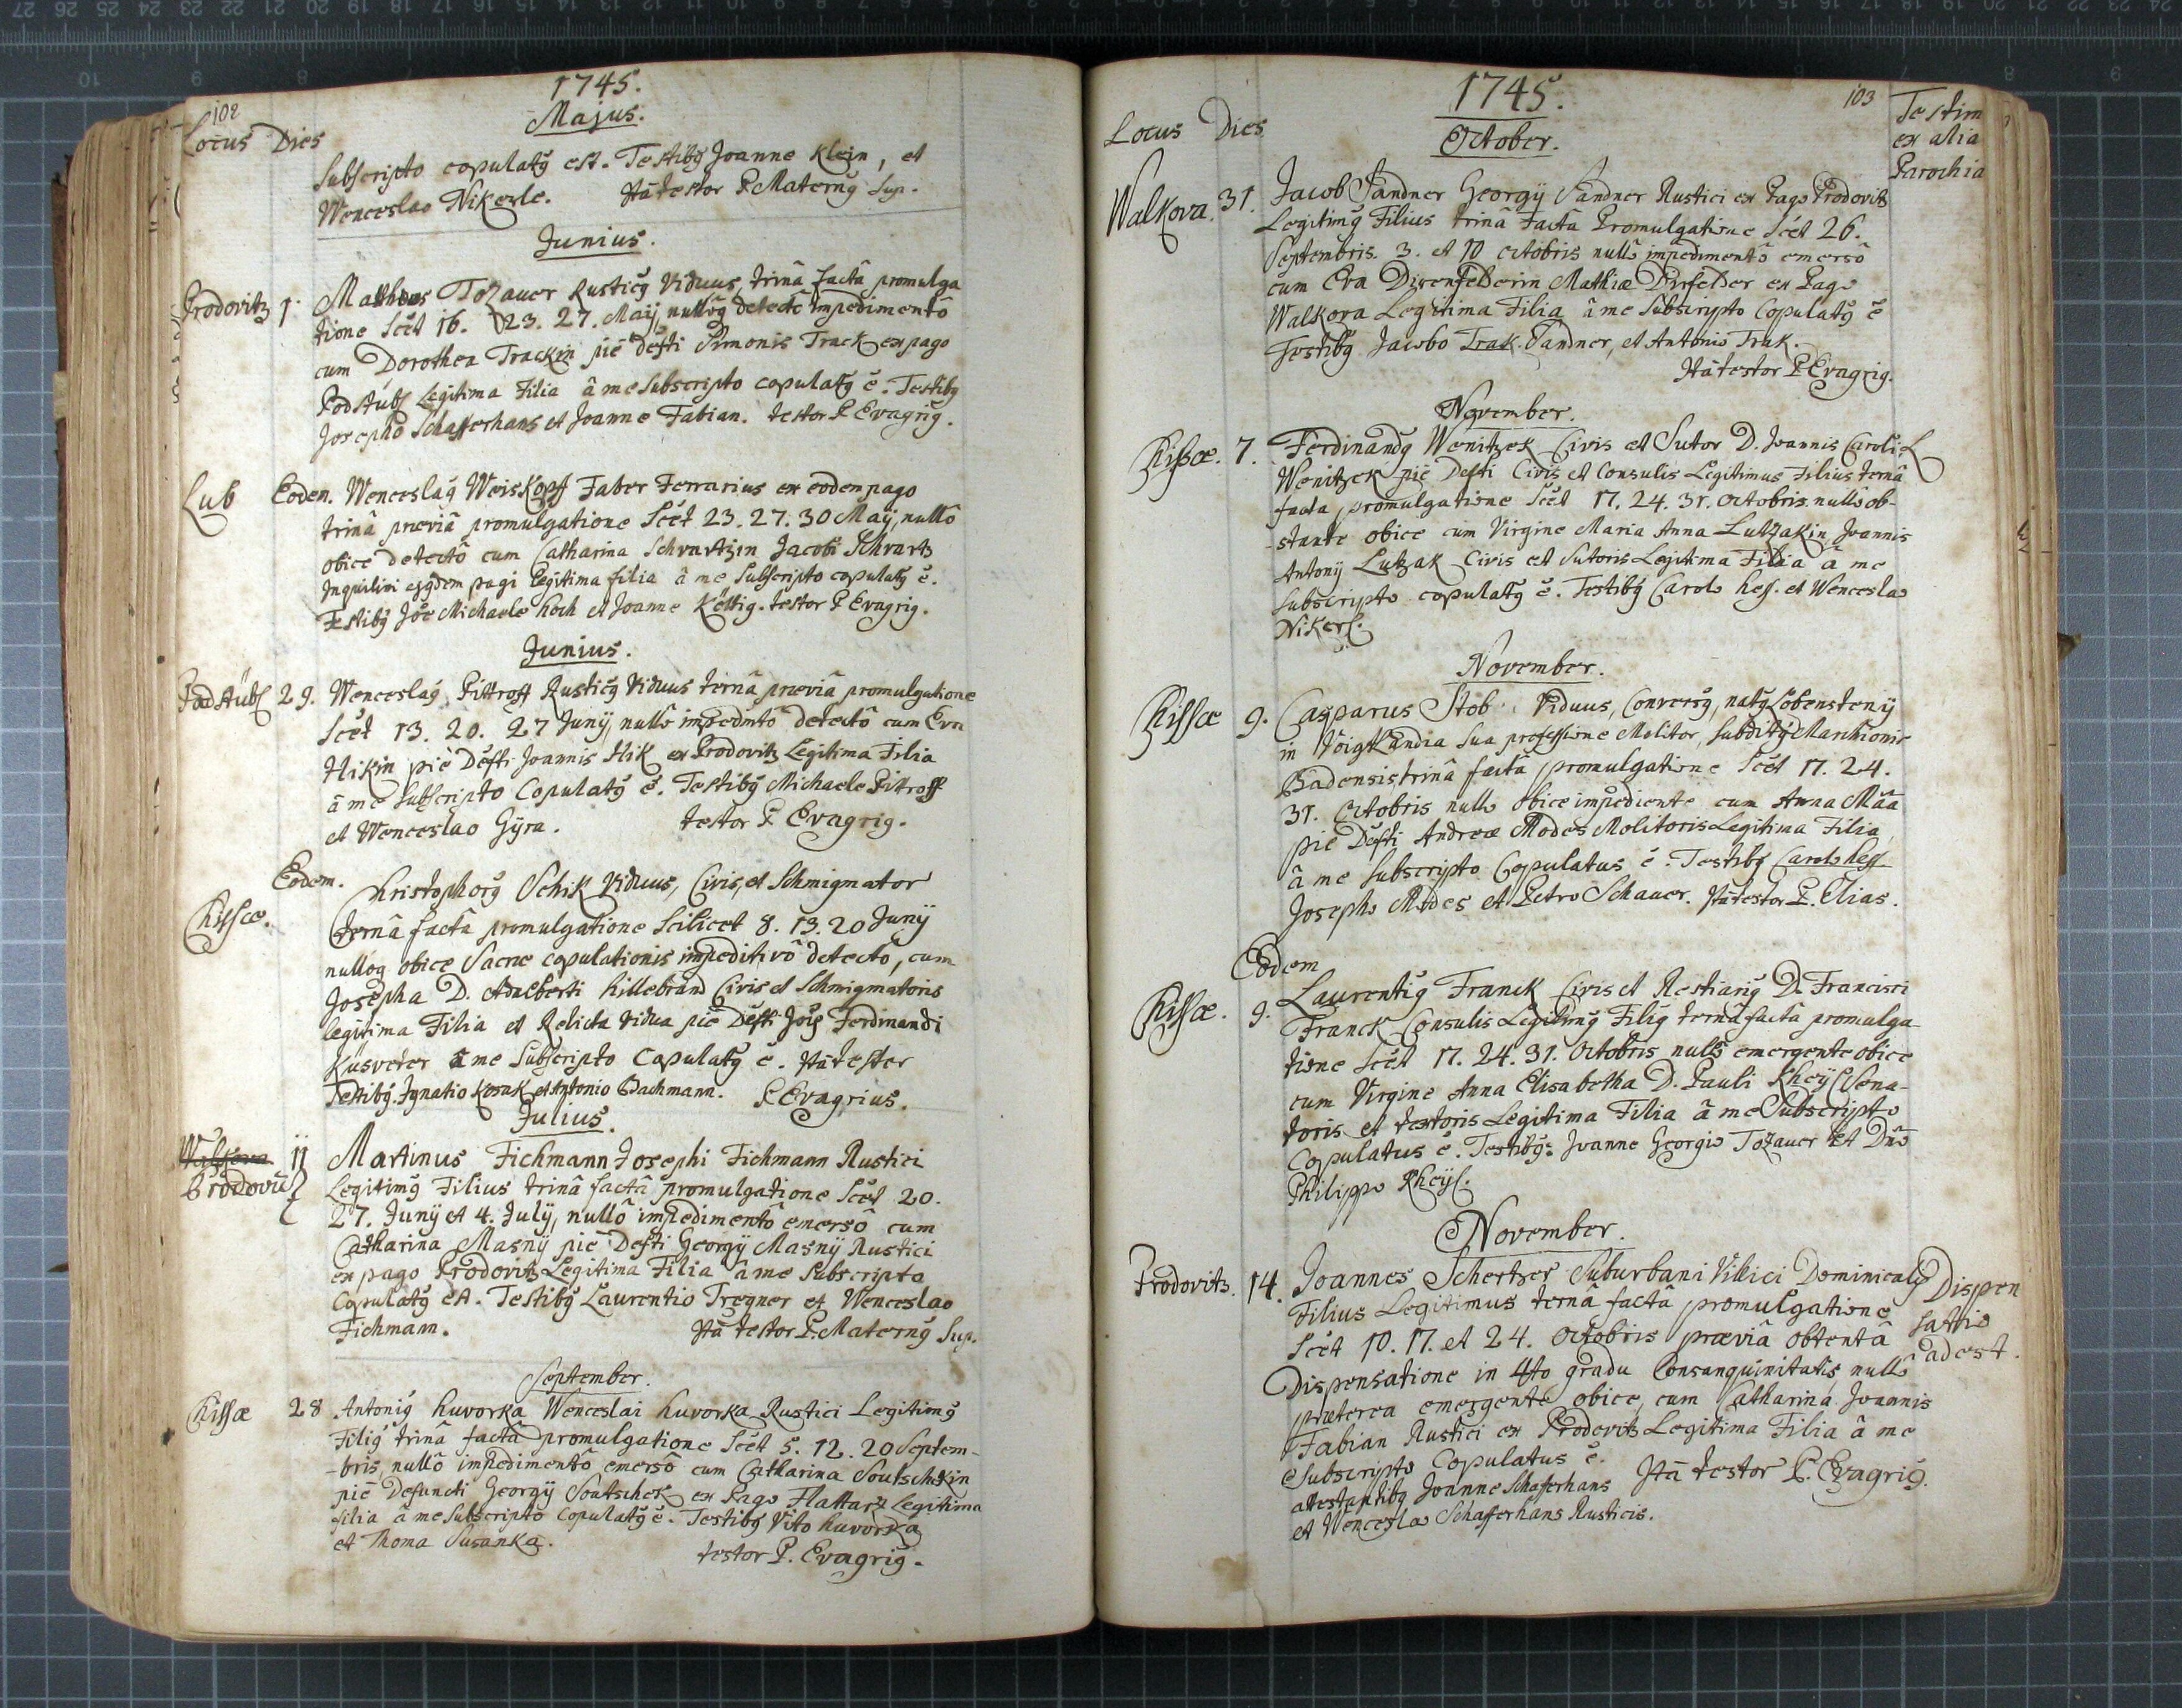 102
1745.
Majus.
Locus Dies
Subscripto copulatg est. Testibg Joanne Klein, et
Wenceslao Nikerle. Ità testor P. Materng Sup.
Junius.
Prodovitz 1. Mathæus Tozauer Rusticg Viduus, trinâ factâ promulga
tione Scêt 16. 23. 27. Maij, nullog detectô impedimentô
cum Dorothea Trackin piè defti Simonis Track ex pago
Podstubs Legitima Filia â me subscripto copulatg ê. Testibg
Josepho Schafferhans et Joanne Fabian. testor P. Evagrig.
Lub Eodem. Wenceslag Weiskopff Faber Ferrarius ex eodem pago
trinâ præviâ promulgatione Scêt 23. 27. 30 Maij, nullô
obice detectô cum Catharina Schvartzin Jacobi Schvartz
Inquilini ejgdem pagi Legitima filia â me Subscripto copulatg ê.
Testibg Jôe Michaele Koch et Joanne Kéttig. testor P. Evagrig.
Junius.
Podstubs 29. Wenceslag Pittroff Rusticg Viduus ternâ præviâ promulgatione
Scêt 13. 20. 27 Junij, nullô impedmtô detectô cum Eva
Hikin piè Defti Joannis Hik ex Prodovitz Legitima Filia
â me subscripto Copulatg ê. Testibg Michaele Pittroff
et Wenceslao Gÿra. testor P. Evagrig.
Eodem.
Kissæ. Christophorg Schik Viduus, Civis, et Schmigmator
ternâ factâ promulgatione Scilicet 8. 13. 20 Junij
nullog obice Sacræ copulationis impeditivô detectô, cum
Josepha D. Adalberti Hillebrand Civis et Schmigmatoris
legitima Filia et Relicta vidua piè Defti Jois Ferdinandi
Küsveter â me Subscripto Copulatg ê. Ità testor
Testibg. Ignatio Kosak et Antonio Bachmann. P. Evagrius.
Julius.
Walkova 11 Martinus Fichmann Josephi Fichmann Rustici
Brodovitz Legitimg Filius trinâ factâ promulgatione Scêt 20.
27. Junij et 4. Julij, nullô impedimentô emersô cum
Catharina Masnij piè Defti Georgij Masnij Rustici
ex pago Prodovitz Legitima Filia â me Subscripto
Copulatg est. Testibg Laurentio Tregner et Wenceslao
Fichmann. Ità testor P. Materng Sup.
September.
Kissæ 28 Antonig Huvorka Wenceslai Huvorka Rustici Legitimg
Filig trinâ factâ promulgatione Scêt 5. 12. 20 Septem-
-bris, nullô impedimentô emersô cum Catharina Soutschekin
piè Defuncti Georgij Soutschek ex Pago Flattarz Legitima
filia â me Subscripto Copulatg ê. Testibg Vito Huvorka
et Thoma Susanka. testor P. Evagrig.
103
1745.
Testim
ex alia
Parochia
Locus Dies
October.
Walkova. 31. Jacob Sandner Georgij Sandner Rustici ex Pago Prodovitz
Legitimg Filius trinâ Factâ Promulgatione Scêt 26.
Septembris. 3. et 10 octobris nullô impedimentô emersô
cum Eva Direnfelderin Mathiæ Dirfelder ex Pago
Walkova Legitima Filia â me Subscripto Copulatg ê
Testibg Jacobo Trak Sandner, et Antonio Trak.
Ità testor P. Evagrig.
November.
Kissæ. 7. Ferdinandg Wenitzek Civis et Sutor D. Joannis Caroli
Wenitzek piè Defti Civis et Consulis Legitimus Filius ternâ
facta promulgatione Scêt 17. 24. 31. Octobris nullô ob-
-stante obice cum Virgine Maria Anna Lutzakin Joannis
Antonij Lutzak Civis et Sutoris Legitima Filia â me
subscripto copulatg ê. Testibg Carolo hess. et Wenceslao
Nikerl.
November.
Kissæ 9. Casparus Stob Viduus, Conversg, natg Lobenstenij
in Voigtlandia Sua professione Molitor, subditg Marchionis
Badensis, trinâ factâ promulgatione Scêt 17. 24.
31. Octobris nullo obice impediente cum Anna Mãa
piè Defti Andreæ Modes Molitoris Legitima Filia
â me Subscripto Copulatus ê. Testibg Carolo hess
Josepho Modes et Petro Schauer. Ità testor P. Elias.
Eodem
Kissæ. 9. Laurentig Franck Civis et Restiarig D. Francisci
Franck Consulis Legitimg Filig ternâ factâ promulga-
tione Scêt 17. 24. 31. Octobris nullô emergente obice
cum Virgine Anna Elisabetha D. Pauli Kheÿs Sena-
toris et textoris Legitima Filia â me Subscripto
Copulatus ê. Testibg: Joanne Georgio Tozauer et Dnô
Philippo Kheÿs.
November.
Prodovitz. 14. Joannes Schertzer Suburbani Villici Dominicalg
Filius Legitimus ternâ factâ promulgatione
Scêt 10. 17. et 24. Octobris præviâ obtentâ
Dispensatione in 4to gradu Consanguinitatis nullô
præterea emergente obice, cum Catharina Joannis
Fabian Rustici ex Prodovitz Legitima Filia â me
Subscripto Copulatus ê. Ità testor P. Evagrig.
attestantibg Joanne Schafferhans
et Wenceslao Schafferhans Rusticis.
Dispen
satio
adest.